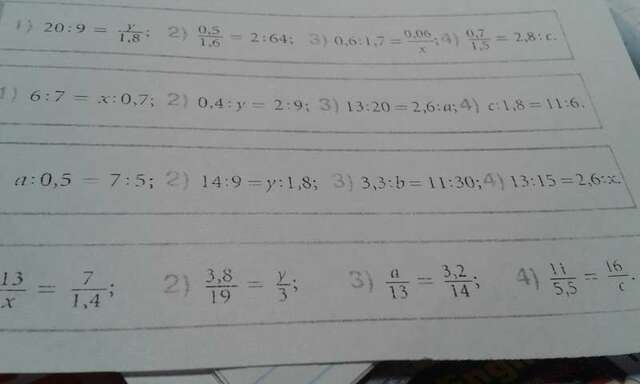 1) 20:9 = y/1,8; 2) 0,5/1,6 = 2:64; 3) 0,6:1,7 = 0,06/x; 4) 0,7/1,5 = 2,8:c.
1) 6:7 = x:0,7; 2) 0,4:y = 2:9; 3) 13:20 = 2,6:a; 4) c:1,8 = 11:6.
a:0,5 = 7:5; 2) 14:9 = y:1,8; 3) 3,3:b = 11:30; 4) 13:15 = 2,6:x.
13/x = 7/1,4; 2) 3,8/19 = y/3; 3) a/13 = 3,2/14; 4) 11/5,5 = 16/c.